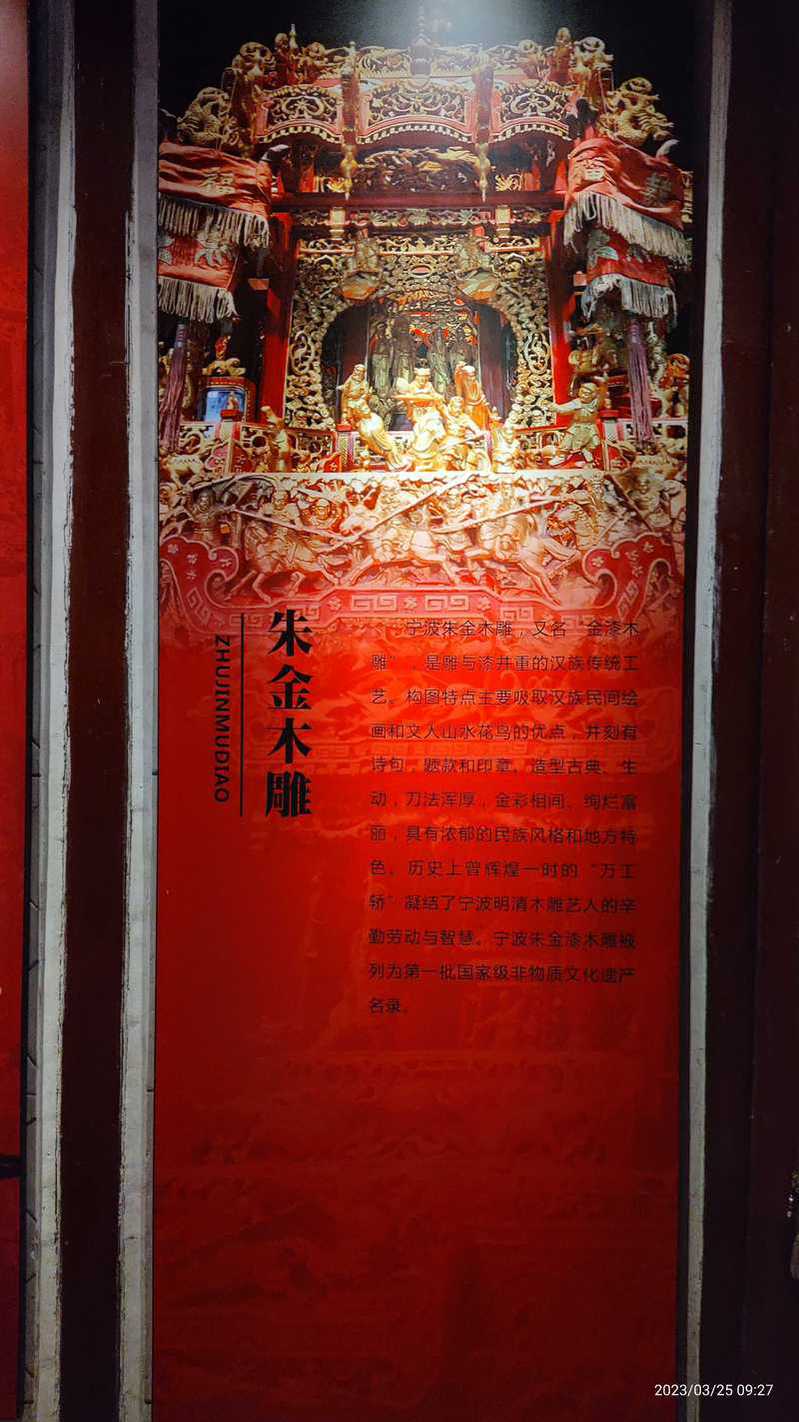 朱金木雕
ZHUJINMUDIAO
宁波朱金木雕，又名“金漆木
雕”，是雕与漆并重的汉族传统工
艺。构图特点主要吸取汉族民间绘
画和文人山水花鸟的优点，并刻有
诗句、题款和印章。造型古典、生
动，刀法浑厚，金彩相间，绚烂富
丽，具有浓郁的民族风格和地方特
色。历史上曾辉煌一时的“万工
轿”凝结了宁波明清木雕艺人的辛
勤劳动与智慧。宁波朱金漆木雕被
列为第一批国家级非物质文化遗产
名录。
2023/03/25 09:27